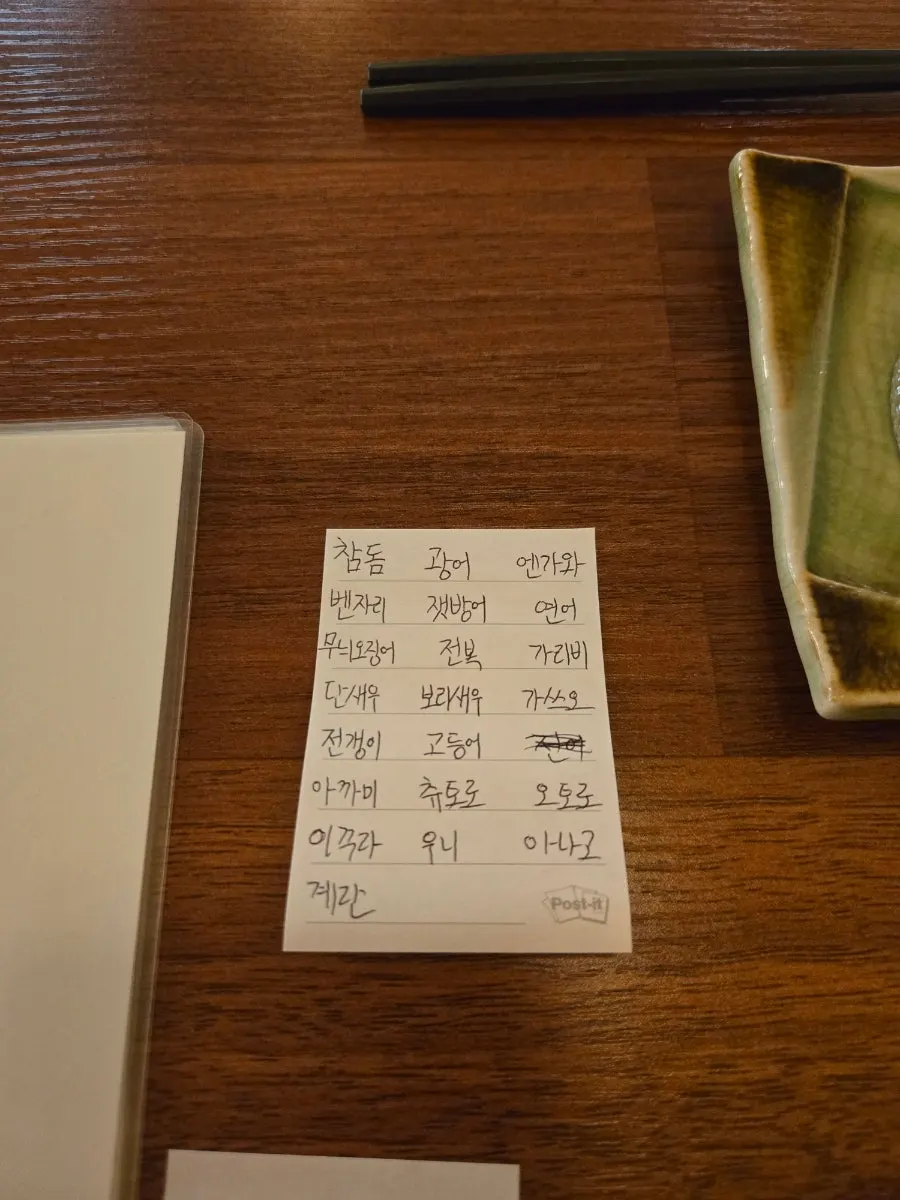 참돔 광어 엔가와
벤자리 잿방어 연어
무늬오징어 전복 가리비
단새우 보리새우 가쓰오
전갱이 고등어
아까미 츄토로 오토로
이꾸라 우니 아나고
계란 Post-it